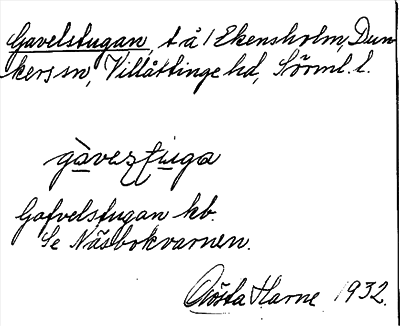 Gavelstugan, t å 1 Ekensholm, Dun-
kers sn, Villåttinge hd, Sörml. l.
gàvezstuga
Gafvelstugan kb.
Se Näsbokvarnen.
Gösta Harne 1932.